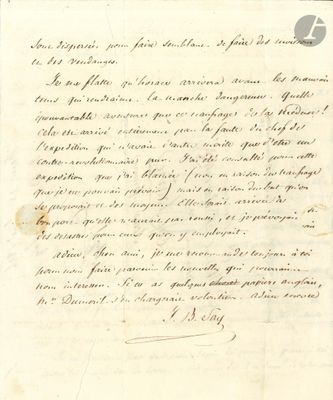 sont dispersés pour faire semblant de faire des moissons
et des vendanges.
Je me flatte qu'horace arrivera avant les mauvais
tems qui rendraient la manche dangereuse. Quelle
épouvantable aventure que ce naufrage de la Méduse!
Cela est arrivé entièrement par la faute du chef de
l'expédition qui n'avait d'autre mérite que d'être un
contre-révolutionnaire pur. J'ai été consulté pour cette
expédition que j'ai blâmée (non en raison du naufrage
que je ne pouvais prévoir) mais en raison du but qu'on
se proposait et des moyens. Elle serait arrivée à
bon port qu'elle n'aurait pas réussi, et je prévoyais
des désastres pour ceux qu'on y employait.
adieu, cher ami, je me recommande toujours à toi
pour nous faire parvenir les nouvelles qui pourraient
nous intéresser. Si tu as quelques papiers anglais,
Mr Dumont s'en chargerait volontiers. adieu
J. B. Say